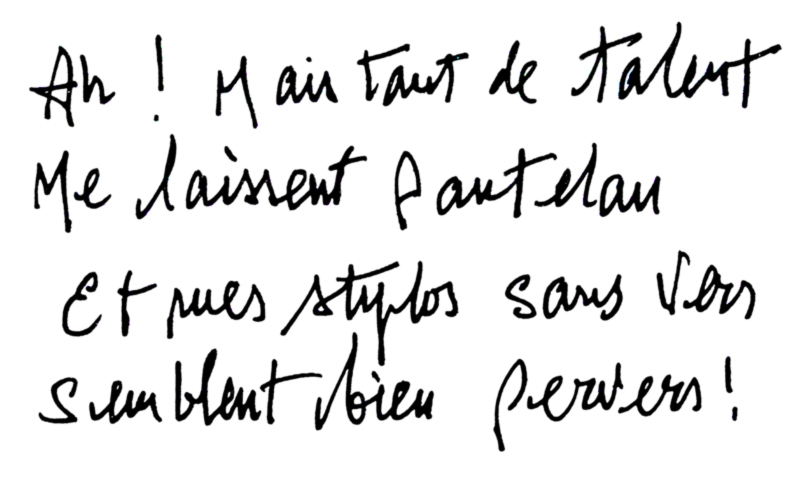 Ah ! Mais tant de talent
Me laissent pantelan
Et mes stylos sans vers
semblent bien pervers !